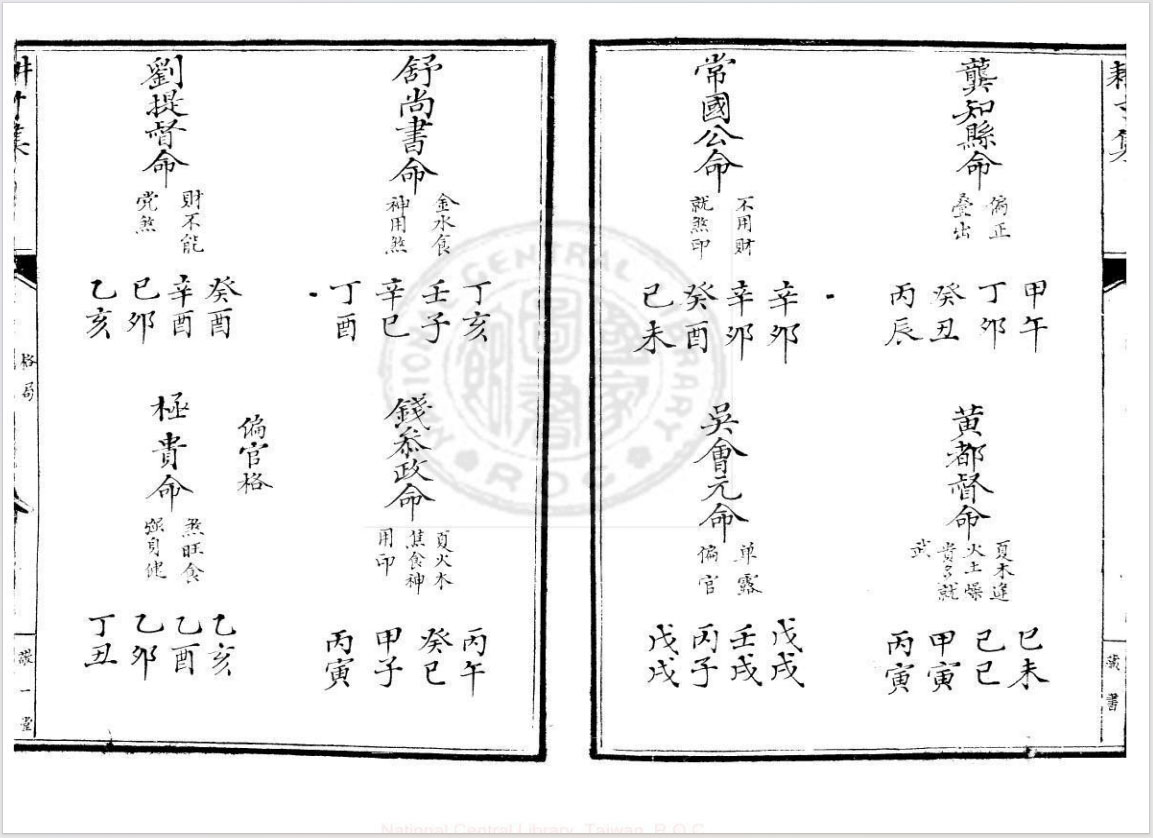 龔知縣命
偏正
疊出
甲午
丁卯
癸丑
丙辰
黄都督命
夏木逢
火土燥
貴多就
武
己未
己巳
甲寅
丙寅
常國公命
不用財
就煞印
辛卯
辛卯
癸酉
己未
吳會元命
单露
偏官
戊戌
壬戌
丙子
戊戌
藏書
舒尚書命
金水食
神用煞
丁亥
壬子
辛巳
丁酉
錢叅政命
夏火木
焦食神
用印
丙午
癸巳
甲子
丙寅
劉提督命
財不能
党煞
癸酉
辛酉
己卯
乙亥
偏官格
極貴命
煞旺食
强身健
乙亥
乙酉
乙卯
丁丑
格局
一堂
NATIONAL CENTRAL LIBRARY
R.O.C
National Central Library, Taiwan, R.O.C